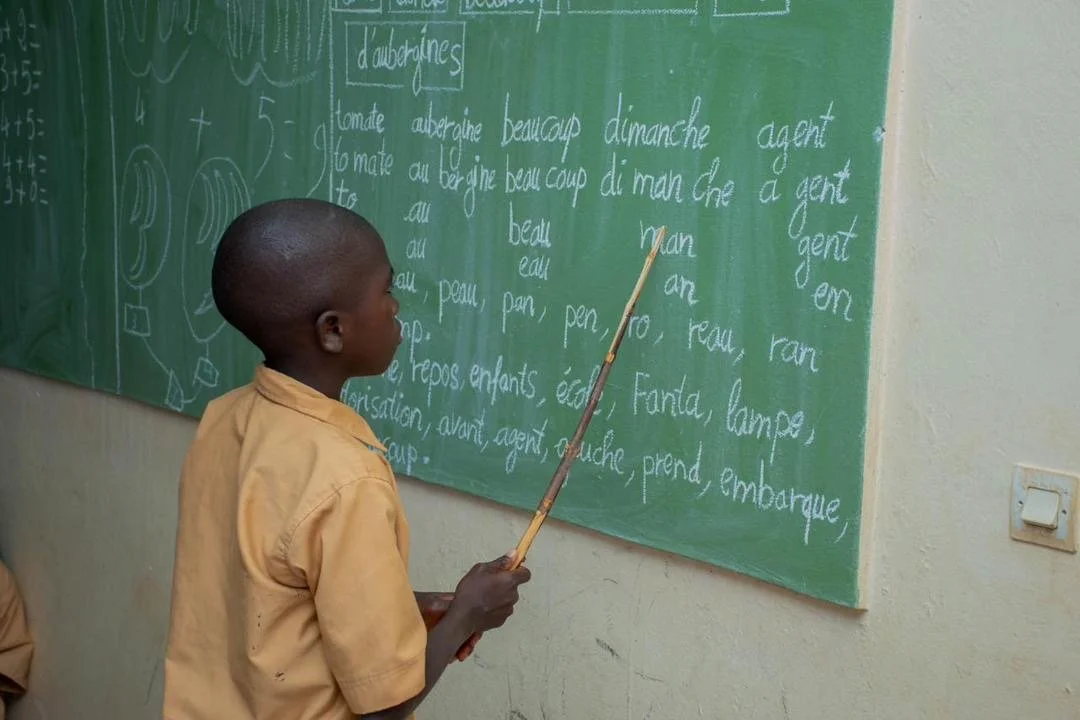 + 2 =
3+5=
4+5=
4+4=
9+0=
4 + 5 = 9
d'aubergines
tomate aubergine beaucoup dimanche agent
to mate au ber gine beau coup di man che a gent
to au beau man gent
au eau an en
peau, pan, pen, ro, reau, ran
repos, enfants, école, Fanta, lampe,
avant, agent, gauche, prend, embarque,